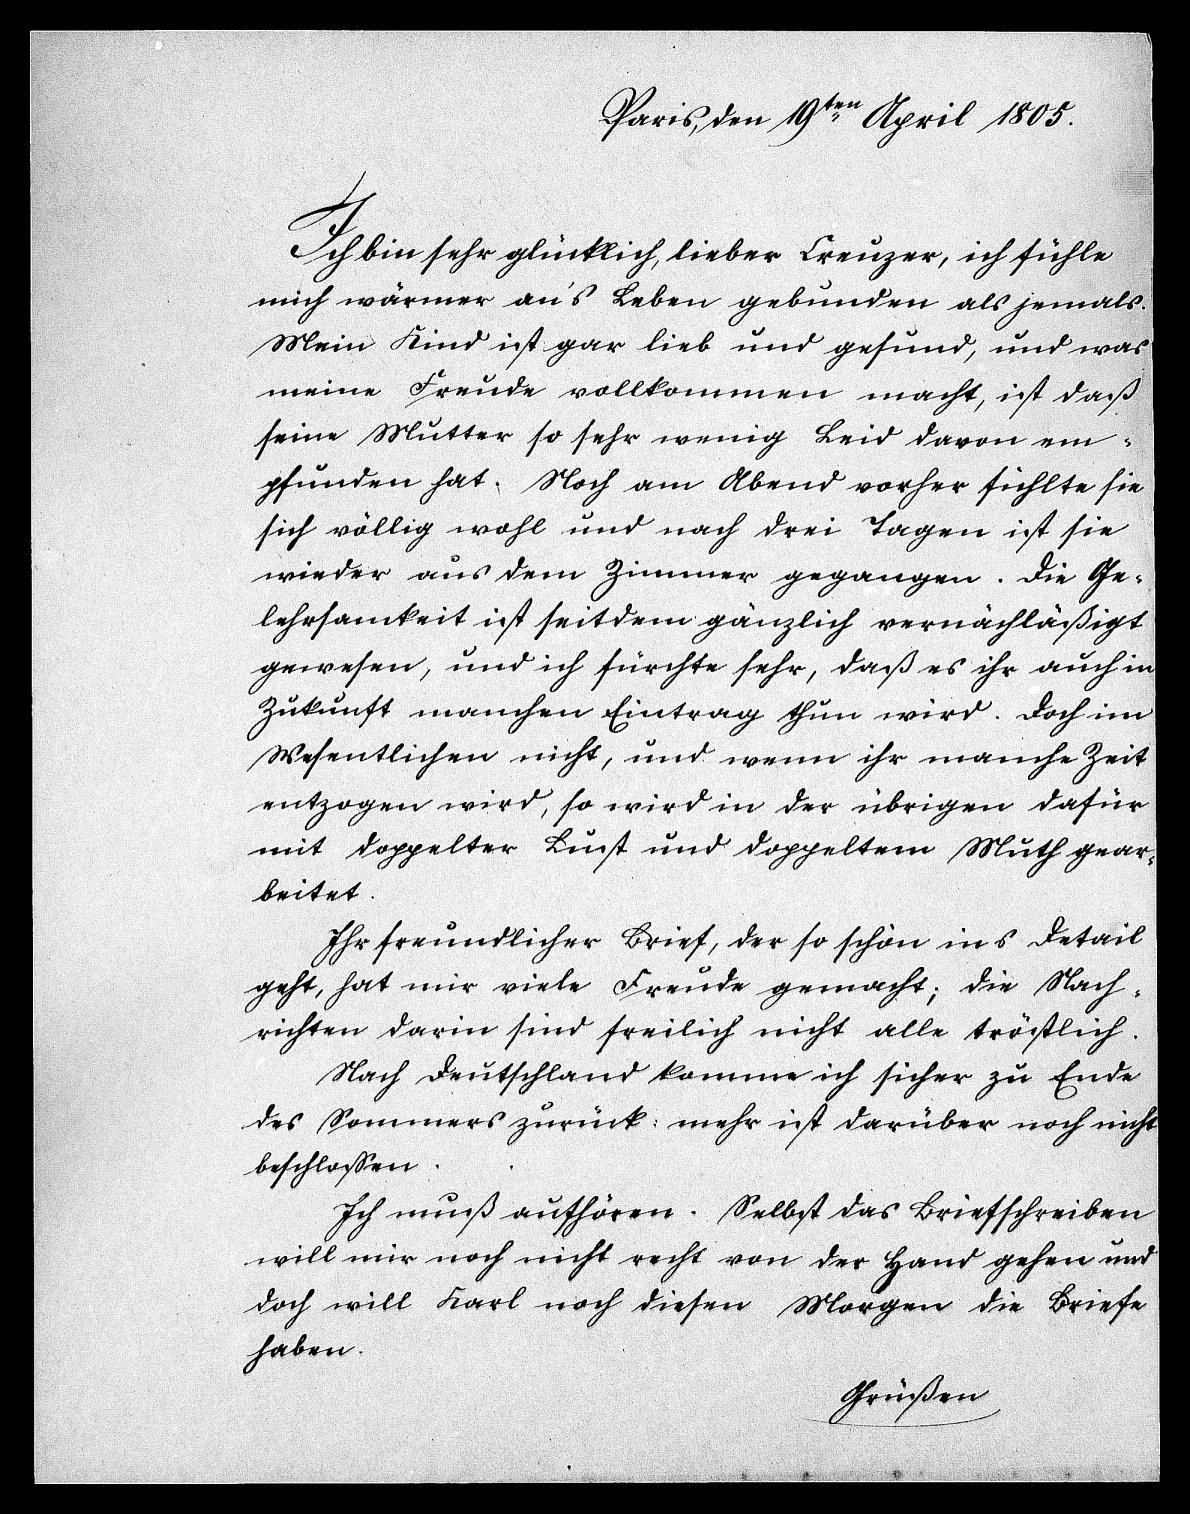 Paris, den 19ten April 1805.
Ich bin sehr glücklich, lieber Creuzer, ich fühle
mich wärmer an's Leben gebunden als jemals.
Mein Kind ist gar lieb und gesund, und was
meine Freude vollkommen macht, ist daß
seine Mutter so sehr wenig Leid davon em-
pfunden hat. Noch am Abend vorher fühlte sie
sich völlig wohl und nach drei Tagen ist sie
wieder aus dem Zimmer gegangen. Die Ge-
lehrsamkeit ist seitdem gänzlich vernachläßigt
gewesen, und ich fürchte sehr, daß es ihr auch in
Zukunft manchen Eintrag thun wird. Doch im
Wesentlichen nicht, und wenn ihr manche Zeit
entzogen wird, so wird in der übrigen dafür
mit doppelter Lust und doppeltem Muth gear-
beitet.
Ihr freundlicher Brief, der so schön ins Detail
geht, hat mir viele Freude gemacht; die Nach-
richten darin sind freilich nicht alle tröstlich.
Nach Deutschland komme ich sicher zu Ende
des Sommers zurück: mehr ist darüber noch nicht
beschlossen.
Ich muß aufhören. Selbst das Briefschreiben
will mir noch nicht recht von der Hand gehen und
doch will Karl noch diesen Morgen die Briefe
haben.
Grüßen